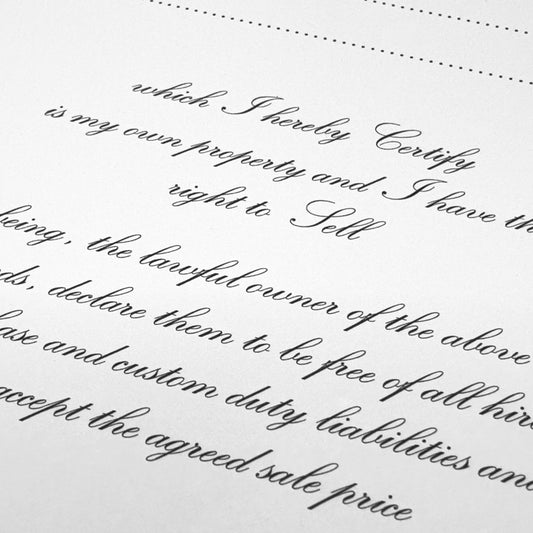 which I hereby Certify
is my own property and I have th
right to Sell
being, the lawful owner of the above
ds, declare them to be free of all hire
ase and custom duty liabilities and
accept the agreed sale price